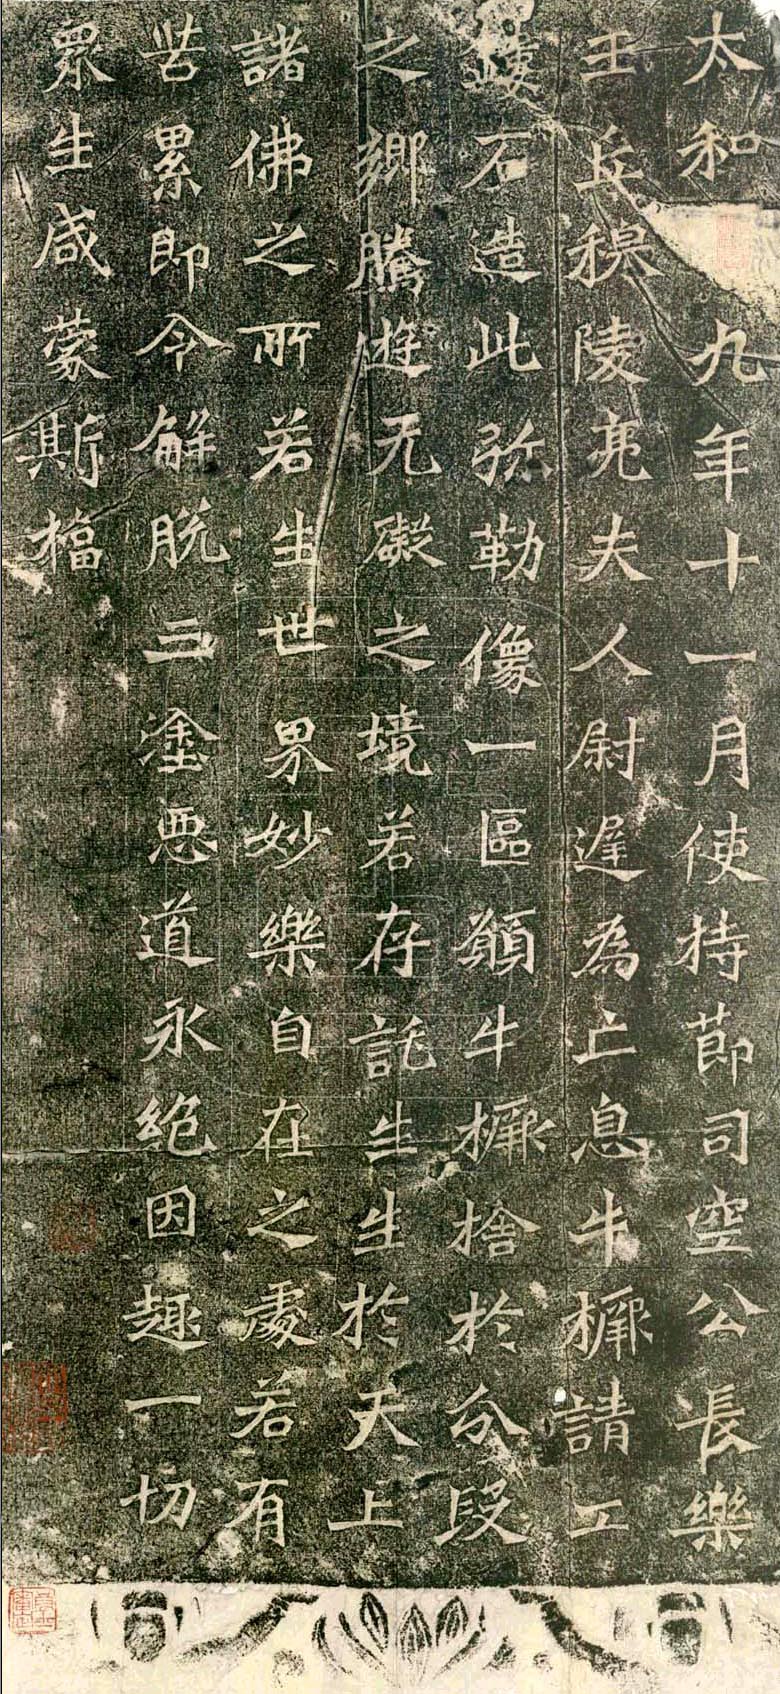 太和九年十一月使持莭司空公長樂
王丘穆陵亮夫人尉遲為亡息牛橛請工
鏤石造此弥勒像一區願牛橛捨於分段
之鄉騰遊无礙之境若存託生生於天上
諸佛之所若生世界妙樂自在之處若有
苦累即令解脱三塗惡道永絶因趣一切
眾生咸蒙斯福